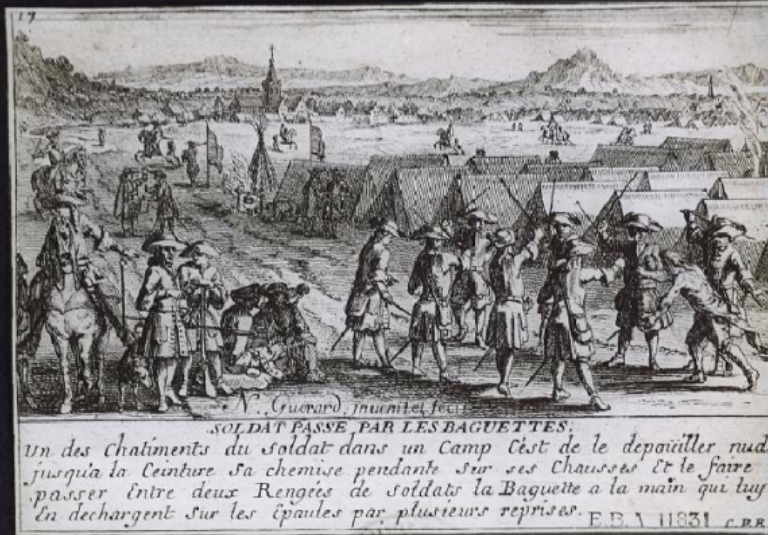 17
N. Guerard, inuenit et fecit
SOLDAT PASSÉ PAR LES BAGUETTES.
Un des Chatiments du soldat dans un Camp C'est de le depoüiller nud
jusqu'a la Ceinture sa chemise pendante sur ses Chausses Et le faire
passer Entre deux Rengées de soldats la Baguette a la main qui luy
En dechargent sur les Epaules par plusieurs reprises.
E.B.A 11831
C.P.R